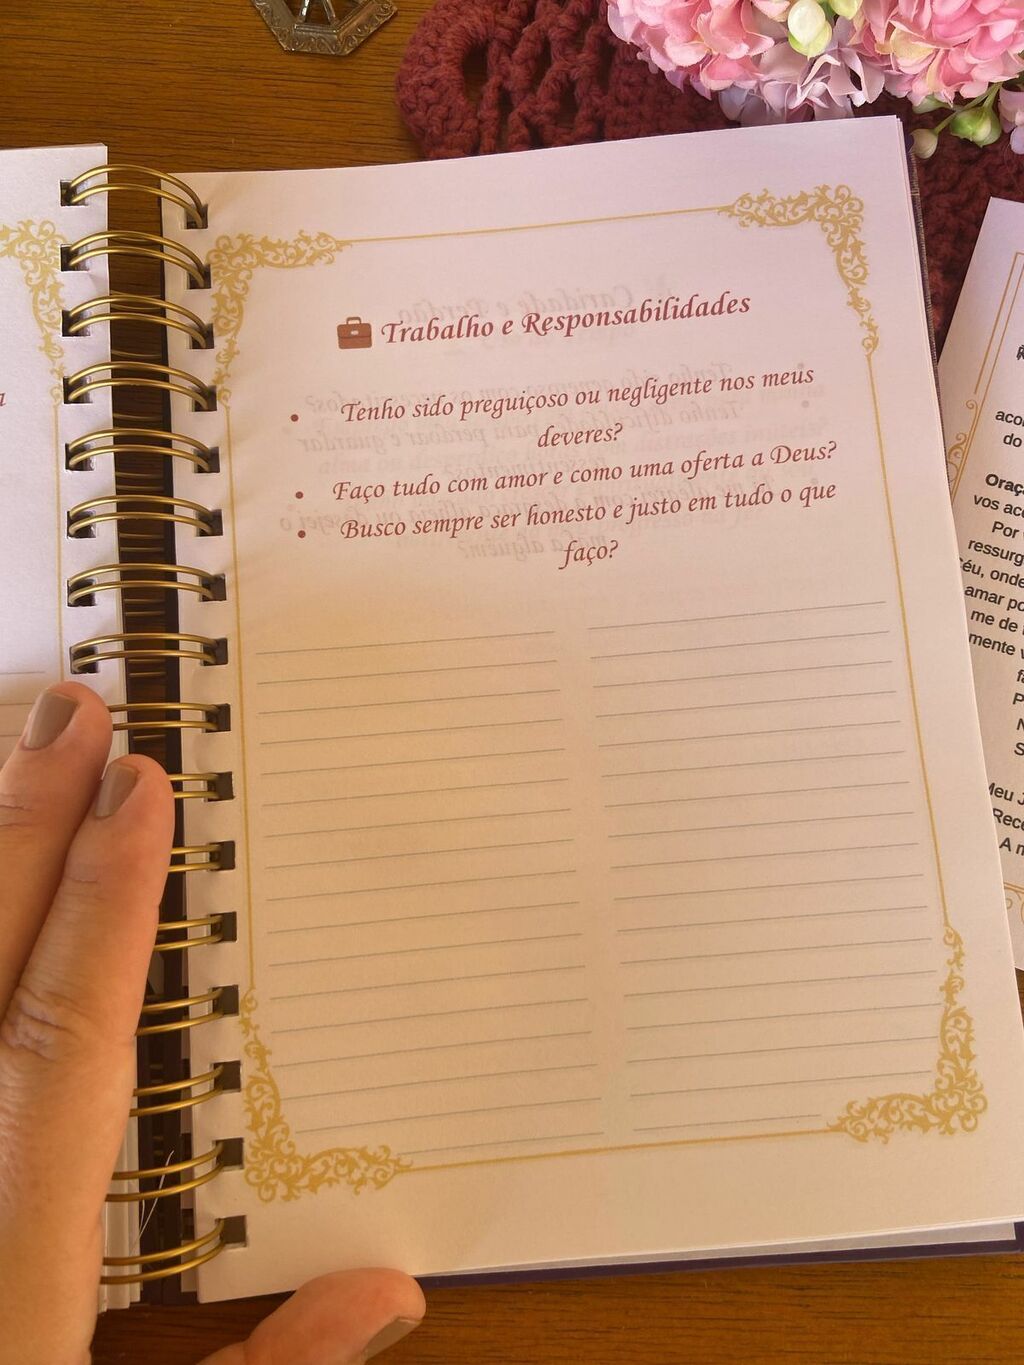 Trabalho e Responsabilidades
• Tenho sido preguiçoso ou negligente nos meus
deveres?
• Faço tudo com amor e como uma oferta a Deus?
• Busco sempre ser honesto e justo em tudo o que
faço?
a
do
Oraç
vos ac
Por
ressurg
céu, onde
amar po
me de
mente v
fa
P
N
S
Meu J
Rece
A m